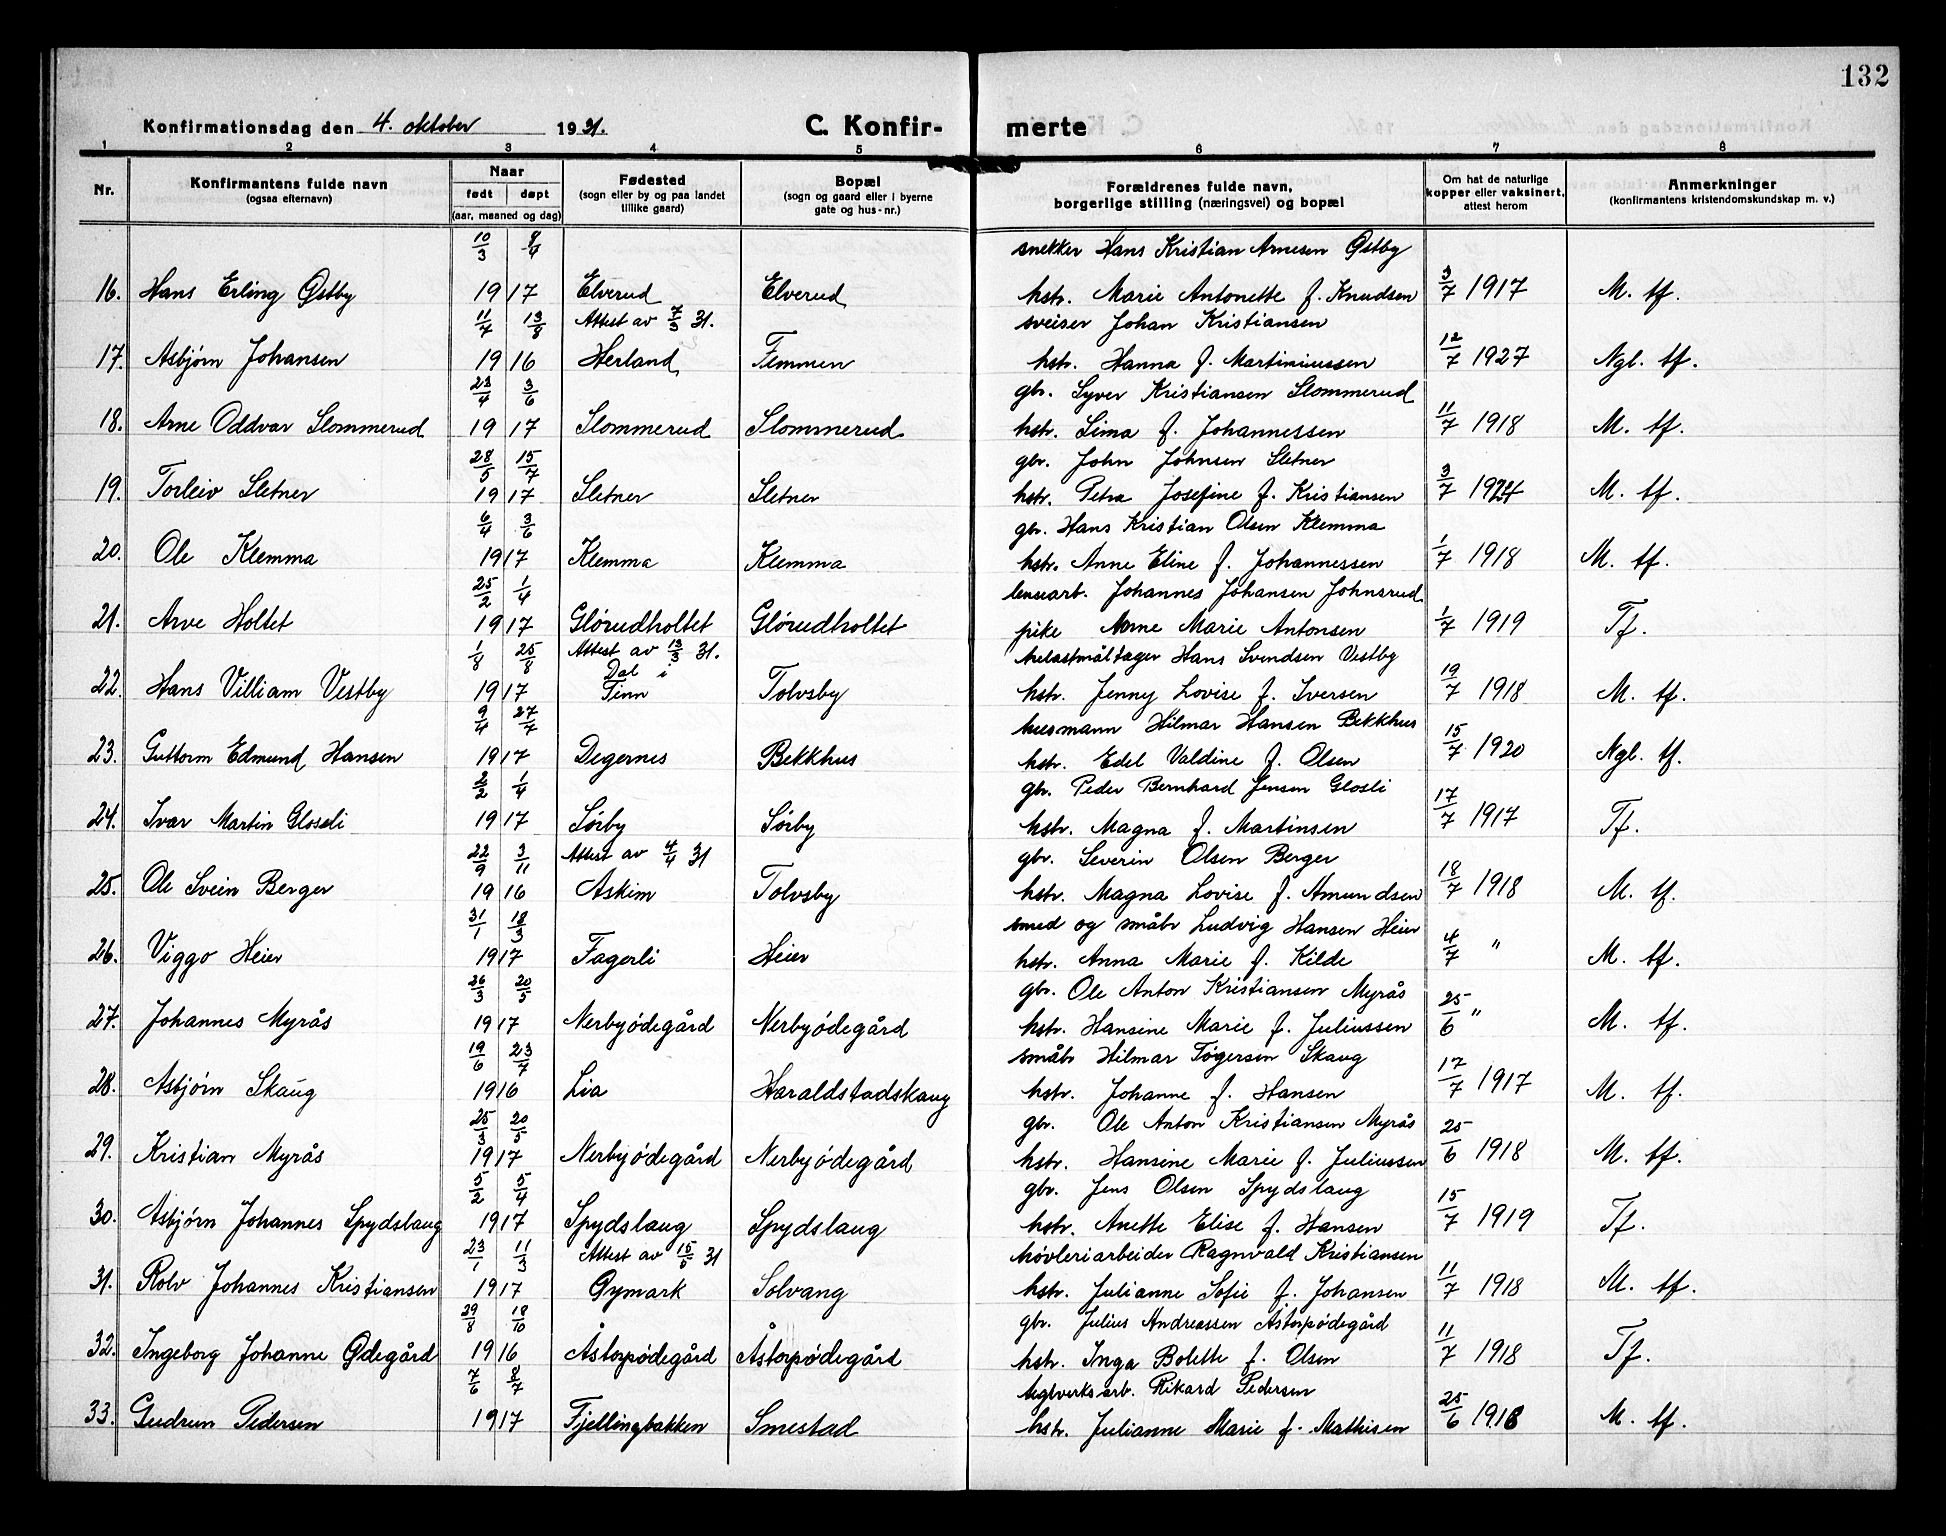 132
Konfirmationsdag den 4. oktober 1931. C. Konfir- merte
1 2 3 4 5 6 7 8
Nr. Konfirmantens fulde navn (ogsaa efternavn) Naar født døpt (aar, maaned og dag) Fødested (sogn eller by og paa landet tillike gaard) Bopæl (sogn og gaard eller i byerne gate og hus-nr.) Forældrenes fulde navn, borgerlige stilling (næringsvei) og bopæl Om hat de naturlige kopper eller vaksinert, attest herom Anmerkninger (konfirmantens kristendomskundskap m. v.)
10/3 8/4 snekker Hans Kristian Arnesen Østby
16. Hans Erling Østby 1917 Elverud Elverud hstr. Marie Antonette f. Knudsen 3/7 1917 M. tf.
11/4 13/8 Attest av 7/3 31. sveiser Johan Kristiansen
17. Asbjørn Johansen 1916 Herland Femmen hstr. Hanna f. Martiniussen 12/7 1927 Ngl. tf.
23/4 3/6 gbr. Syver Kristiansen Slommerud
18. Arne Oddvar Slommerud 1917 Slommerud Slommerud hstr. Lima f. Johannessen 11/7 1918 M. tf.
28/5 15/7 gbr. John Johnsen Sletner
19. Torleiv Sletner 1917 Sletner Sletner hstr. Petra Josefine f. Kristiansen 3/7 1924 M. tf.
6/4 3/6 gbr. Hans Kristian Olsen Klemma
20. Ole Klemma 1917 Klemma Klemma hstr. Anne Eline f. Johannessen 1/7 1918 M. tf.
25/2 1/4 lensearb. Johannes Johansen Johnsrud
21. Arve Holtet 1917 Glørudholtet Glørudholtet pike Anne Marie Antonsen 1/7 1919 Tf.
1/8 25/8 Attest av 13/3 31. Hans Svendsen Vestby
22. Hans Villiam Vestby 1917 Dal i Tinn Tolvsby hstr. Jenny Lovise f. Iversen 19/7 1918 M. tf.
9/4 27/4 husmann Hilmar Hansen Bekkhus
23. Guttorm Edmund Hansen 1917 Degernes Bekkhus hstr. Edel Valdine f. Olsen 15/7 1920 Ngl. tf.
2/2 1/4 gbr. Peder Bernhard Jensen Glosli
24. Ivar Martin Glosli 1917 Sørby Sørby hstr. Magna f. Martinsen 17/7 1917 Tf.
22/9 3/11 Attest av 4/4 31 gbr. Severin Olsen Berger
25. Ole Svein Berger 1916 Askim Tolvsby hstr. Magna Lovise f. Amundsen 18/7 1918 M. tf.
31/1 18/3 smed og småbr Ludvig Hansen Heier
26. Viggo Heier 1917 Fagerli Heier hstr. Anna Marie f. Kilde 4/7 " M. tf.
26/3 20/5 gbr. Ole Anton Kristiansen Myrås
27. Johannes Myrås 1917 Nerbyødegård Nerbyødegård hstr. Hansine Marie f. Juliussen 25/6 " M. tf.
19/6 23/7 småbr Hilmar Tøgersen Skaug
28. Asbjørn Skaug 1916 Lia Haraldstadskaug hstr. Johanne f. Hansen 17/7 1917 M. tf.
25/3 20/5 gbr. Ole Anton Kristiansen Myrås
29. Kristian Myrås 1917 Nerbyødegård Nerbyødegård hstr. Hansine Marie f. Juliussen 25/6 1918 M. tf.
5/2 5/4 gbr. Jens Olsen Spydslaug
30. Asbjørn Johannes Spydslaug 1917 Spydslaug Spydslaug hstr. Anette Elise f. Hansen 15/7 1919 Tf.
23/1 11/3 Attest av 15/5 31 høvleriarbeider Ragnvald Kristiansen
31. Rolv Johannes Kristiansen 1917 Gymark Solvang hstr. Julianne Sofie f. Johansen 11/7 1918 M. tf.
29/8 18/10 gbr. Julius Andreassen Åstorpødegård
32. Ingeborg Johanne Ødegård 1916 Åstorpødegård Åstorpødegård hstr. Inga Bolette f. Olsen 11/7 1918 Tf.
7/6 8/7 teglverksarb. Rikard Pedersen
33. Gudrun Pedersen 1917 Fjellingbakken Smestad hstr. Julianne Marie f. Mathisen 25/6 1918 M. tf.